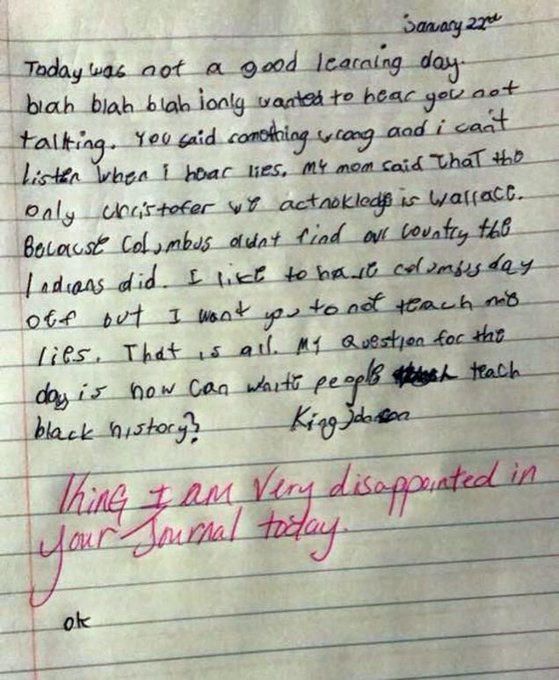 January 22nd
Today was not a good learning day.
blah blah blah i only wanted to hear you not
talking. You said somothing wrong and i can't
listen when i hear lies. My mom said that the
only christofer we acknokledge is wallace.
Because Columbus didnt find our country the
Indians did. I like to have columbus day
off but I want you to not teach me
lies. That is all. My question for the
day is how can white people teach
black history?
King Johnson
King I am very disappointed in
your Journal today.
ok